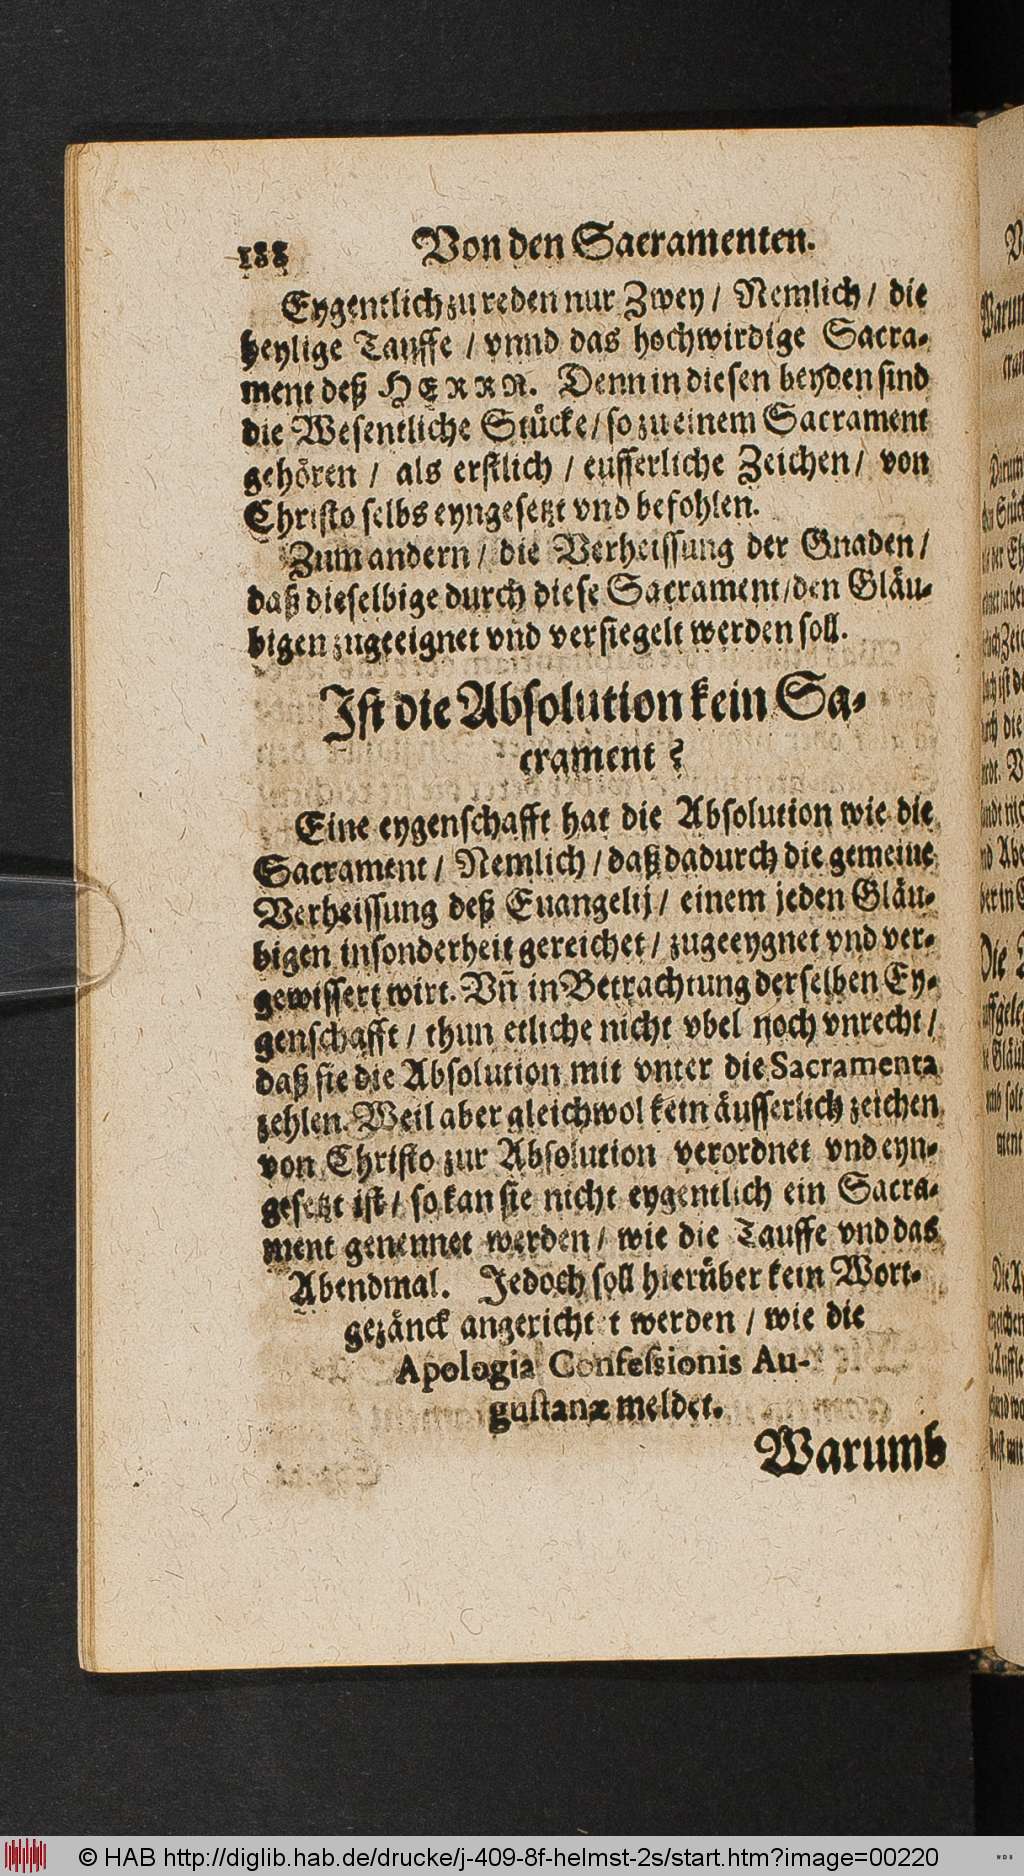 188 Von den Sacramenten.
Eygentlich zu reden nur Zwey / Nemlich / die
heylige Tauffe / vnnd das hochwirdige Sacra-
ment deß HERRN. Denn in diesen beyden sind
die Wesentliche Stücke / so zu einem Sacrament
gehören / als erstlich / eusserliche Zeichen / von
Christo selbs eyngesetzt vnd befohlen.
Zum andern / die Verheissung der Gnaden /
daß dieselbige durch diese Sacrament / den Gläu-
bigen zugeeignet vnd versiegelt werden soll.
Ist die Absolution kein Sa-
crament?
Eine eygenschafft hat die Absolution wie die
Sacrament / Nemlich / daß dadurch die gemeine
Verheissung deß Euangelij / einem jeden Gläu-
bigen insonderheit gereichet / zugeeygnet vnd ver-
gewissert wirt. Vñ in Betrachtung derselben Ey-
genschafft / thun etliche nicht vbel noch vnrecht /
daß sie die Absolution mit vnter die Sacramenta
zehlen. Weil aber gleichwol kein äusserlich zeichen
von Christo zur Absolution verordnet vnd eyn-
gesetzt ist / so kan sie nicht eygentlich ein Sacra-
ment genennet werden / wie die Tauffe vnd das
Abendmal. Jedoch soll hierüber kein Wort-
gezänck angericht t werden / wie die
Apologia Confessionis Au-
gustanæ meldet.
Warumb
© HAB http://diglib.hab.de/drucke/j-409-8f-helmst-2s/start.htm?image=00220